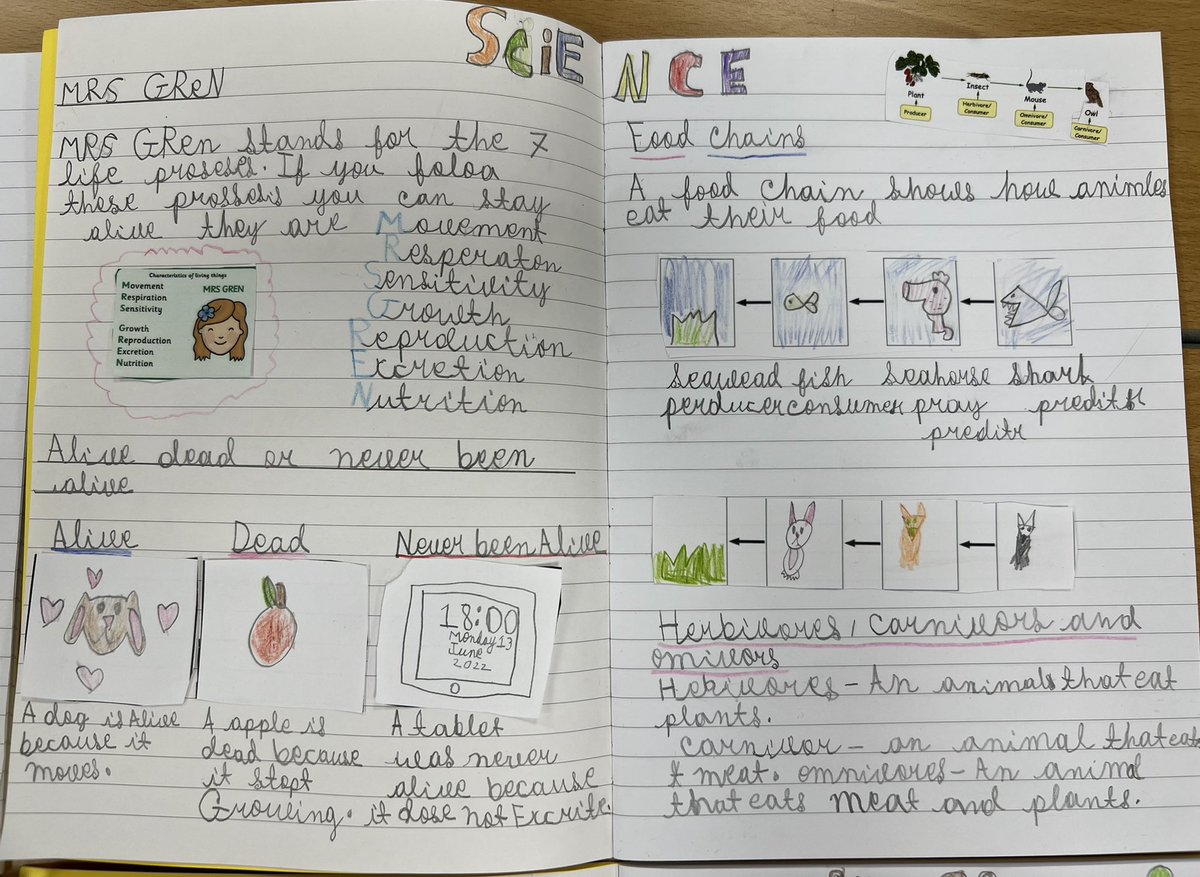 SCIENCE
MRS GReN
MRS GRen stands for the 7
life proseses. If you foloa
these prosseis you can stay
alive they are Movement
Resperaton
Sensitivity
Growth
Reproduction
Excretion
Nutrition
Characteristics of living things
MRS GREN
Movement
Respiration
Sensitivity
Growth
Reproduction
Excretion
Nutrition
Alive dead or never been
alive
Alive
Dead
Never been Alive
18:00
Monday 13
June
2022
A dog is Alive
because it
moves.
A apple is
dead because
it stopt
Growing.
A tablet
was never
alive because
it dose not Excrite.
Plant
Producer
Insect
Herbivore/
Consumer
Mouse
Omnivore/
Consumer
Owl
Carnivore/
Consumer
Food chains
A food chain shows how animles
eat their food
seawead fish seahorse shark
perducer consumer pray preditr
preditr
Herbivores, carnivors and
omivors
Hebivores - An animals that eat
plants.
carnivor - an animal that eat
t meat. omnivores - An animal
that eats meat and plants.